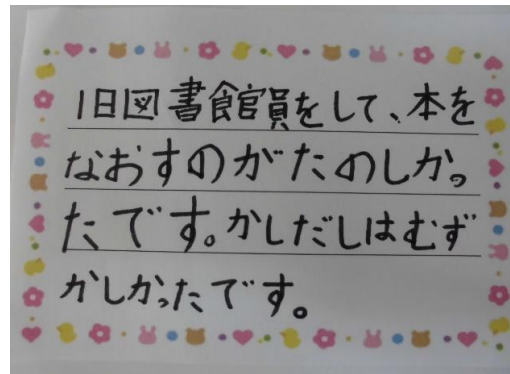 1日図書館員をして、本を
なおすのがたのしかっ
たです。かしだしはむず
かしかったです。